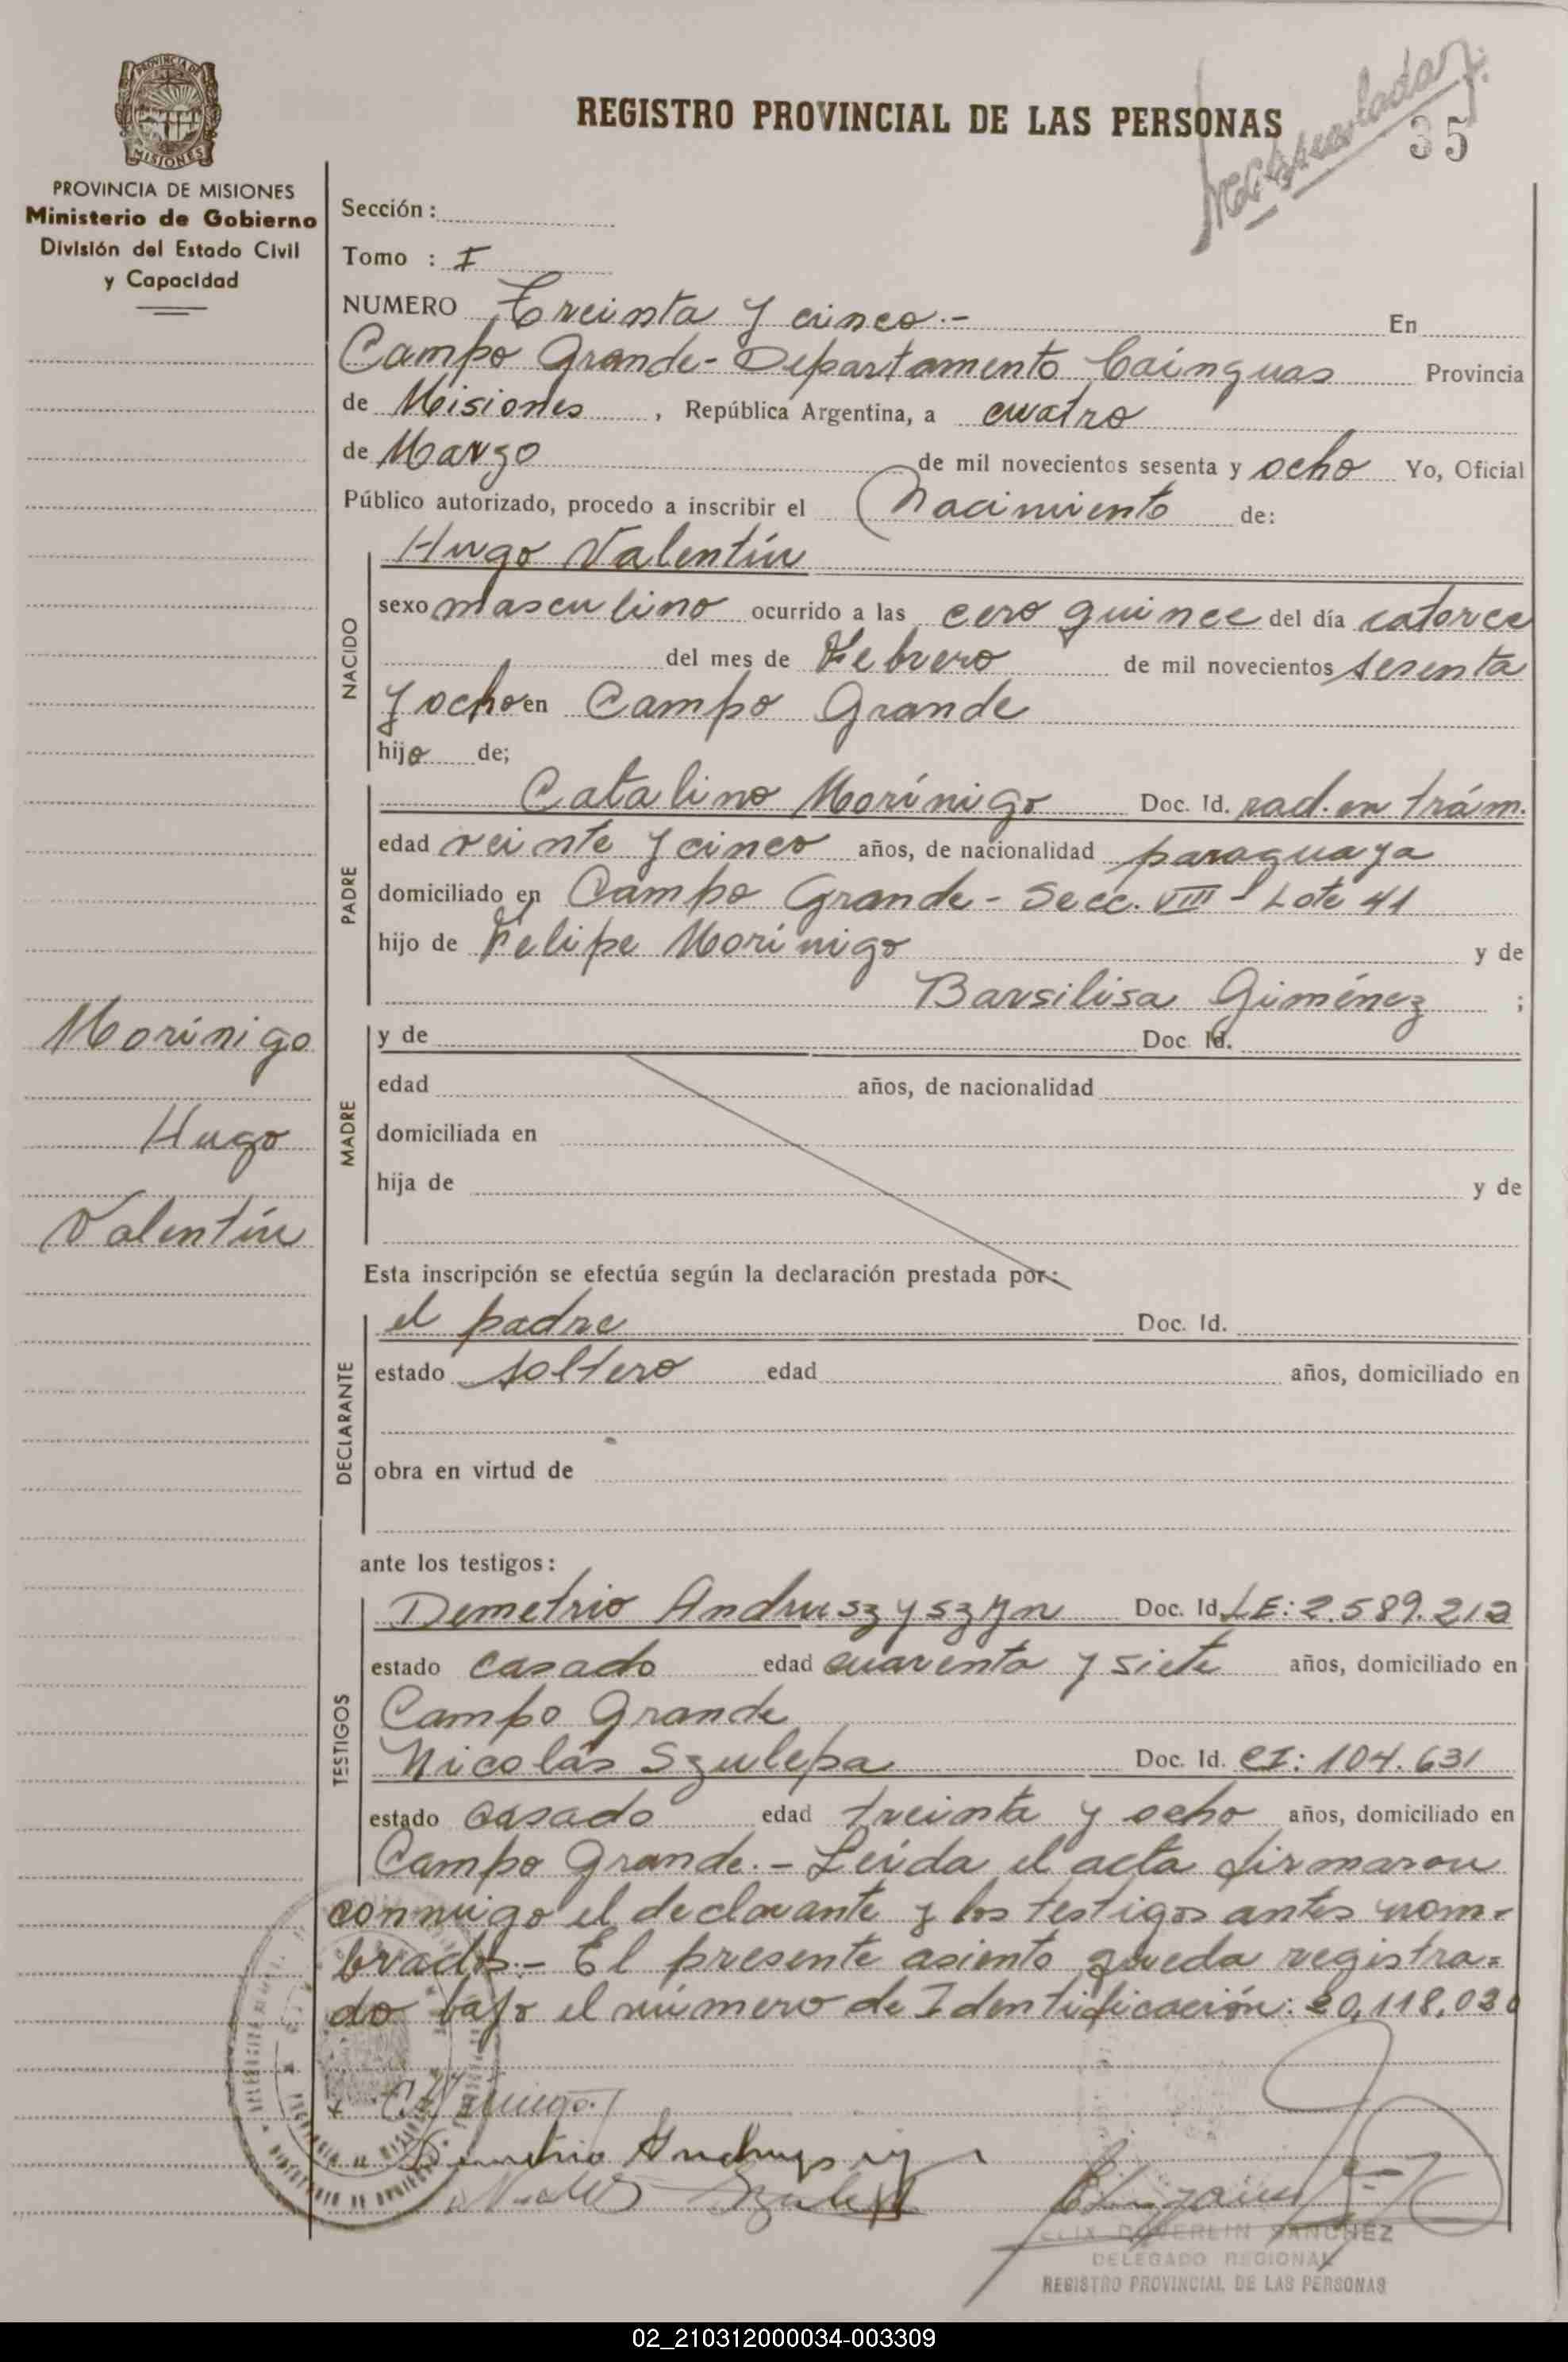 REGISTRO PROVINCIAL DE LAS PERSONAS
35
PROVINCIA DE MISIONES
Ministerio de Gobierno
División del Estado Civil
y Capacidad
Sección:
Tomo : I
NUMERO Treinta y cinco.- En
Campo Grande- Departamento Cainguas Provincia
de Misiones, República Argentina, a cuatro
de Marzo de mil novecientos sesenta y ocho Yo, Oficial
Público autorizado, procedo a inscribir el Nacimiento de:
NACIDO
Hugo Valentín
sexo masculino ocurrido a las cero quince del día catorce
del mes de Febrero de mil novecientos sesenta
y ocho en Campo Grande
hijo de;
PADRE
Catalino Morínigo Doc. Id. rad. en trám.
edad veinte y cinco años, de nacionalidad paraguaya
domiciliado en Campo Grande - Secc. VIII - Lote 41
hijo de Felipe Morínigo y de
Barsilisa Giménez ;
Morínigo
Hugo
Valentín
MADRE
y de Doc. Id.
edad años, de nacionalidad
domiciliada en
hija de y de
Esta inscripción se efectúa según la declaración prestada por:
DECLARANTE
el padre Doc. Id.
estado soltero edad años, domiciliado en
obra en virtud de
ante los testigos:
TESTIGOS
Demetrio Andruszyszyn Doc. Id. LE: 2.589.212
estado casado edad cuarenta y siete años, domiciliado en
Campo Grande
Nicolás Szulepa Doc. Id. CI: 104.631
estado casado edad treinta y ocho años, domiciliado en
Campo Grande.- Leída el acta firmaron
conmigo el declarante y los testigos antes nom-
brados.- El presente asiento queda registra=
do bajo el número de Identificación: 20.118.030
SANCHEZ
DELEGADO REGIONAL
REGISTRO PROVINCIAL DE LAS PERSONAS
02_210312000034-003309